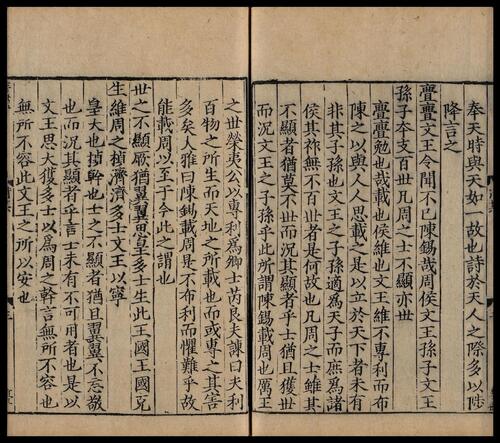 奉天時與天如一故也詩於天人之際多以陟
降言之
亹亹文王令聞不已陳錫哉周侯文王孫子文王
孫子本支百世凡周之士不顯亦世
亹亹勉也哉載也侯維也文王維不專利而布
陳之以與人人思載之是以立於天下者未有
非其子孫也文王之子孫適為天子而庶為諸
侯其祚無不百世者是何故也凡周之士雖其
不顯者猶莫不世而況其顯者乎士猶且獲世
而況文王之子孫乎此所謂陳錫載周也厲王
之世榮夷公以專利為卿士芮良夫諫曰夫利
百物之所生而天地之所載也而或專之其害
多矣大雅曰陳錫載周是不布利而懼難乎故
能載周以至于今此之謂也
世之不顯厥猶翼翼思皇多士生此王國王國克
生維周之楨濟濟多士文王以寧
皇大也楨幹也士之不顯者猶且翼翼不忘敬
也而況其顯者乎言士未有不可用者也是以
文王思大獲多士以為周之幹言無所不容也
無所不容此文王之所以安也